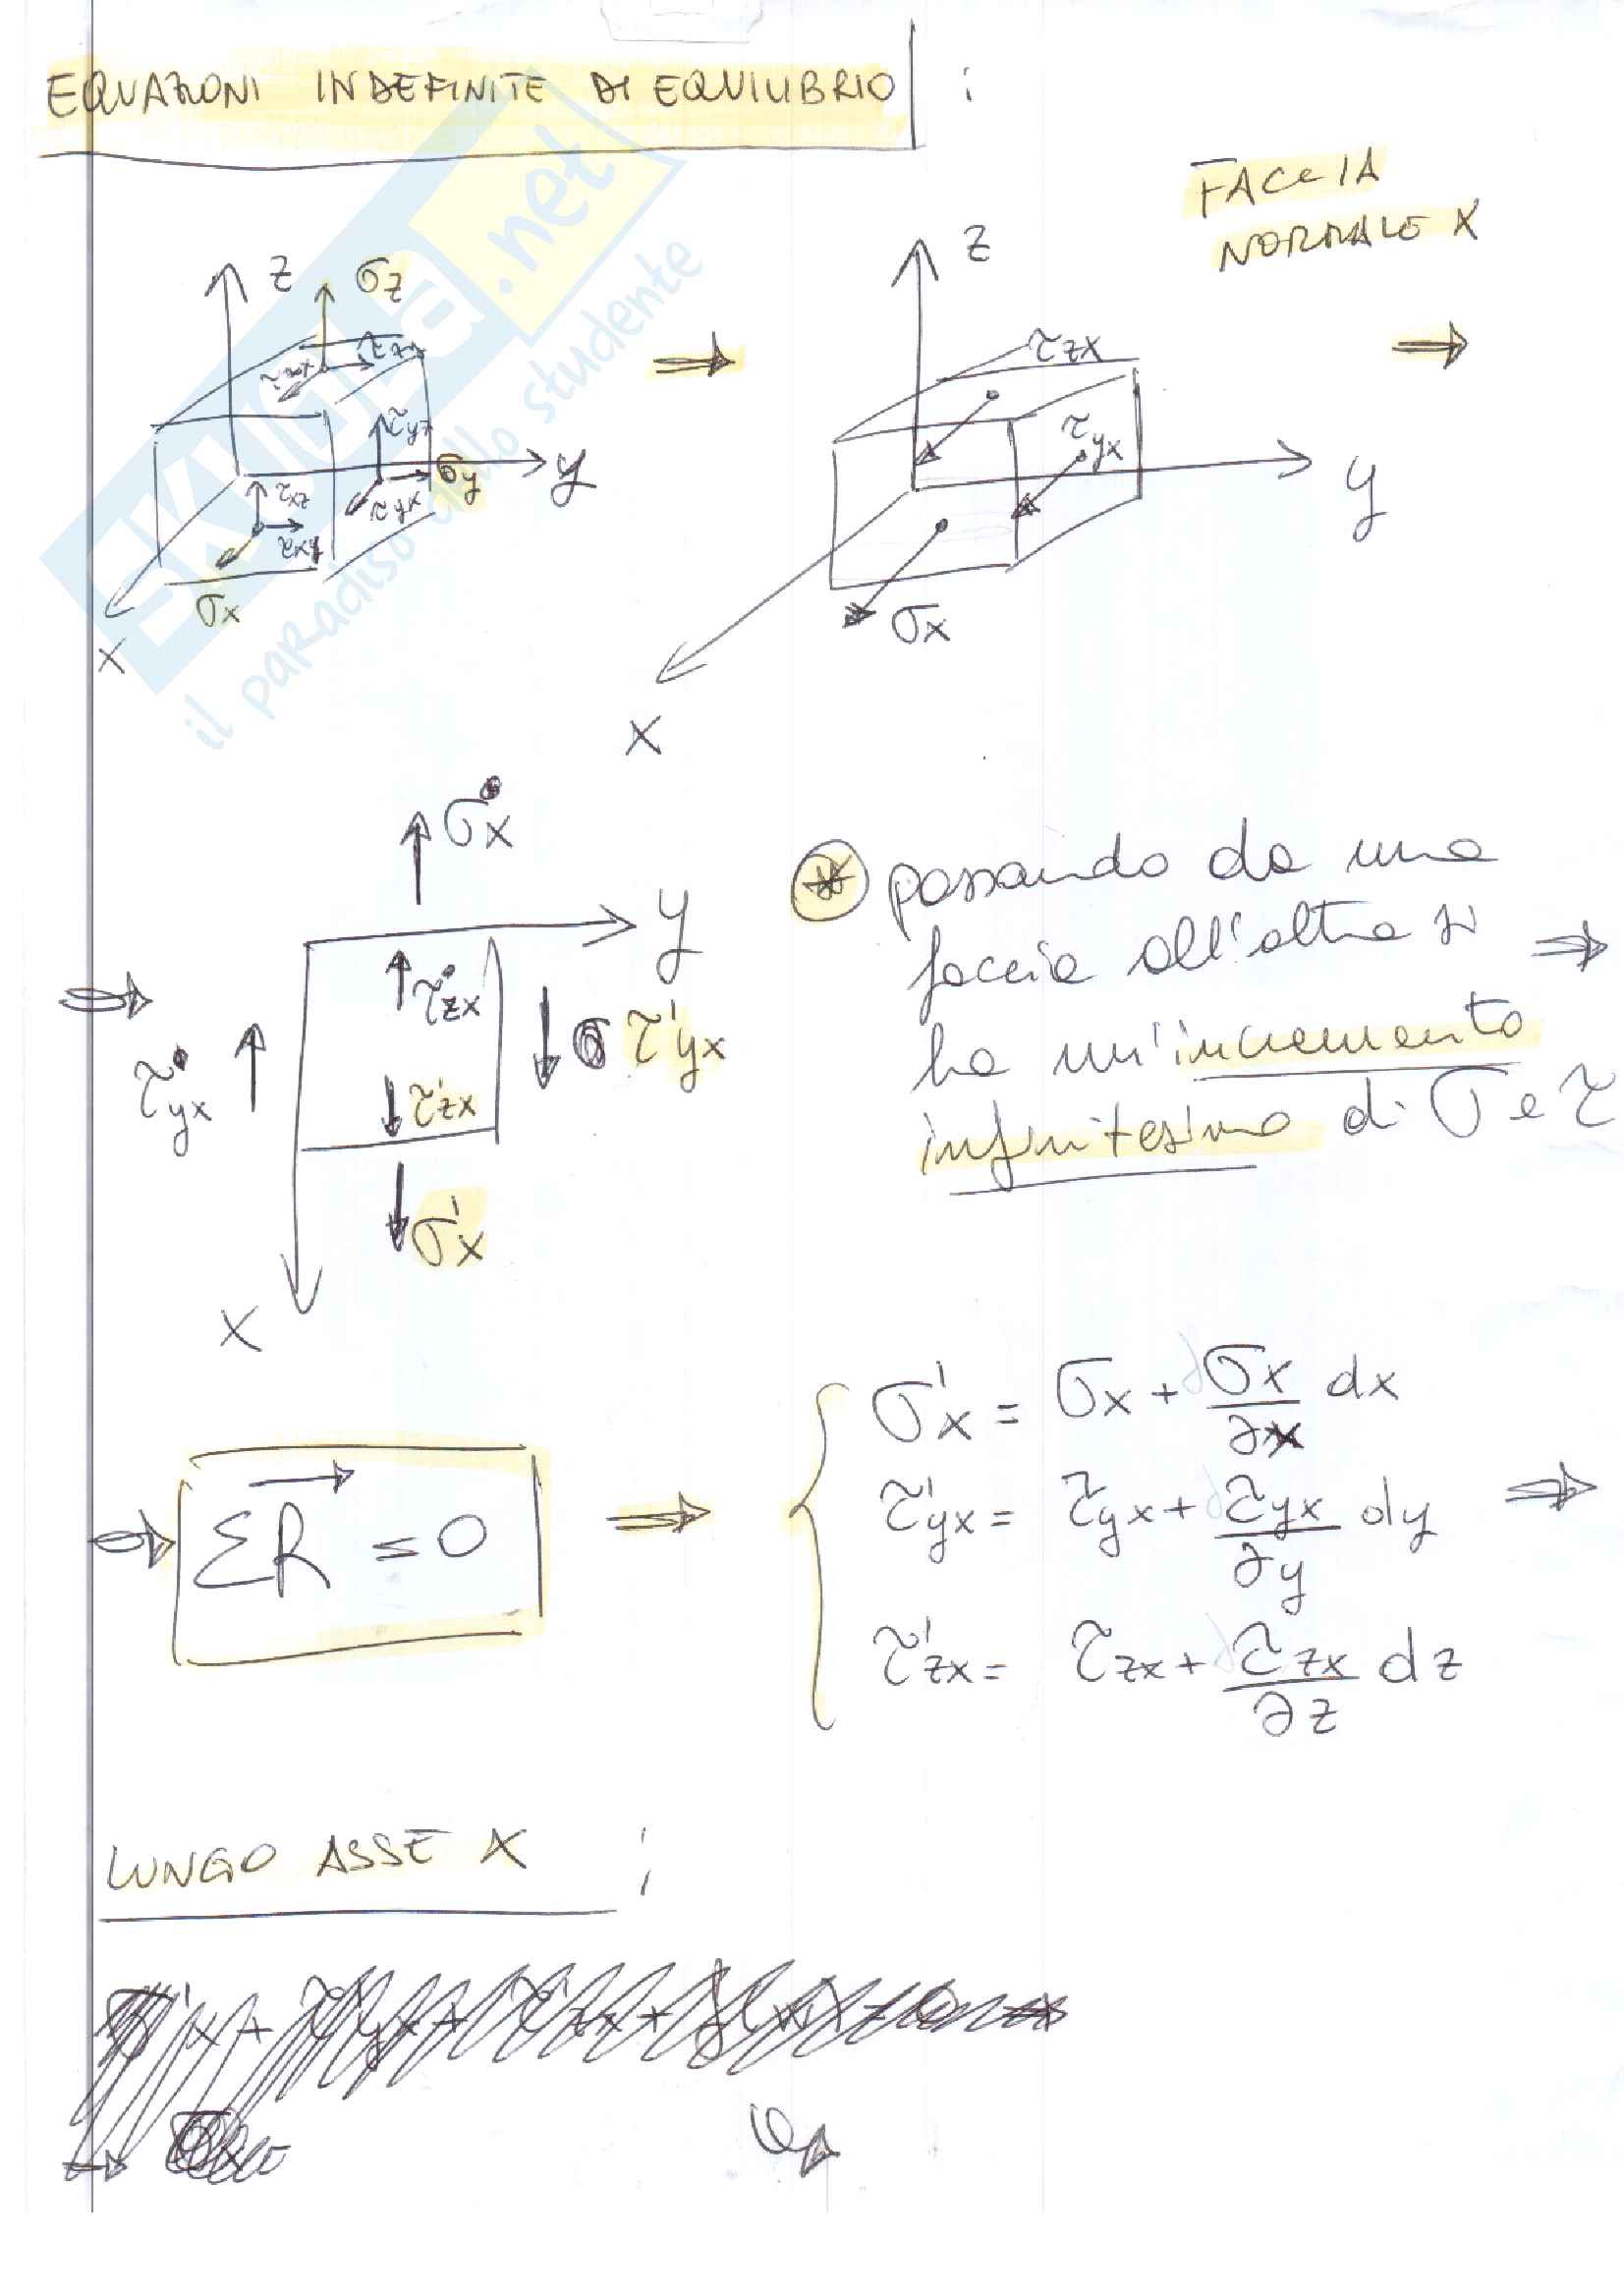 EQUAZIONI INDEFINITE DI EQUILIBRIO :
FACCIA
NORMALE X
z σz
τzx
τyz
σy y
τxz τyx
τxy
σx
x
⇒
z
τzx
τyx
y
σx
x
⇒
σ°x
y
⇒ τ°zx
τ'yx
τ°yx
τ'zx
σ'x
x
* passando da una
faccia all'altra si ⇒
ha un'incremento
infinitesimo di σ e τ
ΣR = 0 ⇒
σ'x = σx + ∂σx/∂x dx
τ'yx = τyx + ∂τyx/∂y dy ⇒
τ'zx = τzx + ∂τzx/∂z dz
LUNGO ASSE X :
SKUOLA.net
il paradiso dello studente